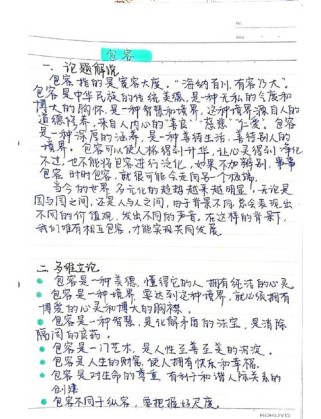 No:
Date
包容
一、论题解说
包容指的是宽容大度。"海纳百川,有容乃大"。
包容是中华民族的传统美德,是一种无私的气度和
博大的胸怀,是一种智慧和境界,这种境界源自人的
道德修养,来自人内心的"善良""慈悲""仁爱"。包容
是一种深厚的涵养,是一种善待生活、善待别人的
境界。包容可以使人格得到升华,让心灵得到净化
不过,也不能将包容进行泛化,如果不加辨别,事事
包容,时时包容,就很可能会走向另一个极端。
当今的世界,多元化的趋势越来越明显,无论是
国与国之间,还是人与人之间,由于背景不同,都会表现出
不同的价值观,发出不同的声音,在这样的背景下,
我们唯有相互包容,才能实现共同发展。
二、多维立论
包容是一种美德,懂得它的人拥有纯洁的心灵。
包容是一种境界,要达到这种境界,就必须拥有
博爱的心灵和博大的胸襟。
包容是一种智慧,是化解矛盾的法宝,是消除
隔阂的良药。
包容是一门艺术,是人性至善至美的沉淀。
包容是人生的财富,使人拥有快乐和幸福。
包容是对生命的尊重,有利于和谐人际关系的
创建
包容不同于纵容,要把握好尺度。
KOKUYO